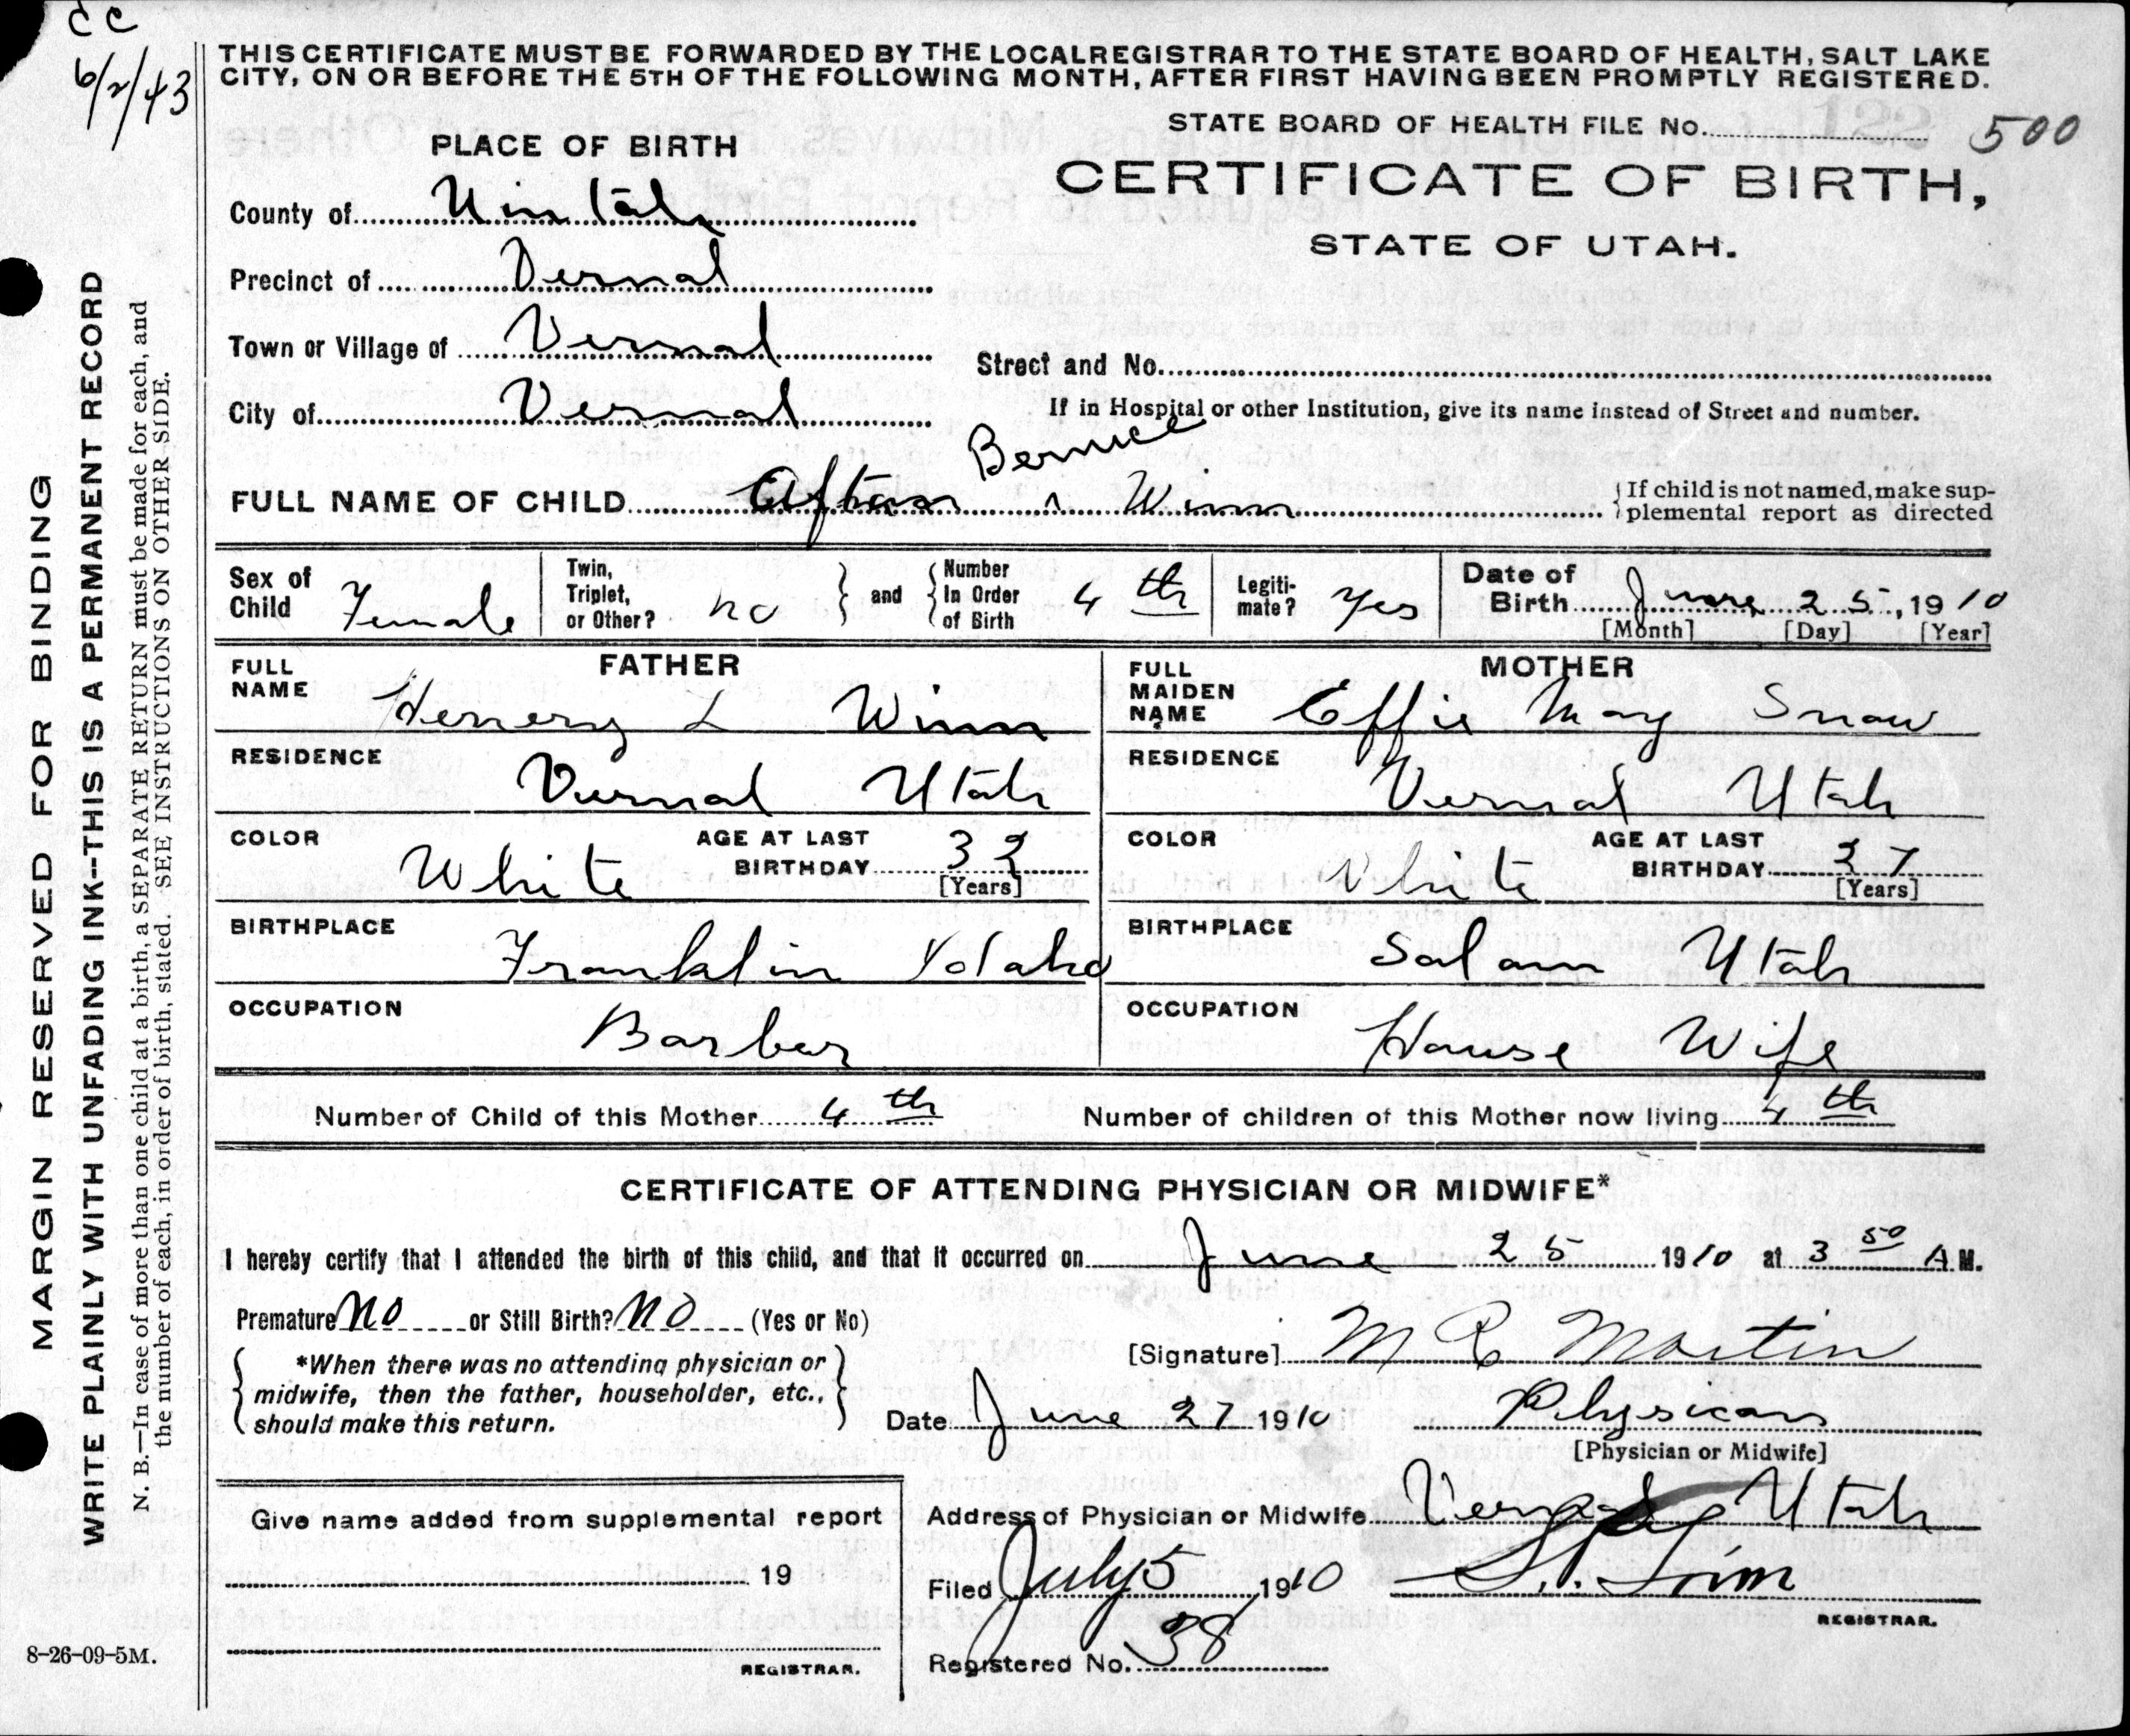 cc
6/2/43
THIS CERTIFICATE MUST BE FORWARDED BY THE LOCAL REGISTRAR TO THE STATE BOARD OF HEALTH, SALT LAKE
CITY, ON OR BEFORE THE 5TH OF THE FOLLOWING MONTH, AFTER FIRST HAVING BEEN PROMPTLY REGISTERED.
STATE BOARD OF HEALTH FILE No. 122 500
PLACE OF BIRTH
CERTIFICATE OF BIRTH,
STATE OF UTAH.
County of Uintah
Precinct of Vernal
Town or Village of Vernal
Street and No.
City of Vernal
If in Hospital or other Institution, give its name instead of Street and number.
Bernice
FULL NAME OF CHILD Afton ^ Winn
{If child is not named, make sup-
plemental report as directed
Sex of Child Female
Twin, Triplet, or Other? no
and
Number In Order of Birth 4th
Legiti-mate? Yes
Date of Birth June 25, 1910
[Month] [Day] [Year]
FATHER
FULL NAME Henery L Winn
MOTHER
FULL MAIDEN NAME Effie May Snow
RESIDENCE Vernal Utah
RESIDENCE Vernal Utah
COLOR White
AGE AT LAST BIRTHDAY 32
[Years]
COLOR White
AGE AT LAST BIRTHDAY 27
[Years]
BIRTHPLACE Franklin Idaho
BIRTHPLACE Salam Utah
OCCUPATION Barber
OCCUPATION House Wife
Number of Child of this Mother 4th
Number of children of this Mother now living 4th
CERTIFICATE OF ATTENDING PHYSICIAN OR MIDWIFE*
I hereby certify that I attended the birth of this child, and that it occurred on June 25 1910 at 3 50 A M.
Premature No or Still Birth? No (Yes or No)
*When there was no attending physician or
midwife, then the father, householder, etc.,
should make this return.
[Signature] M C Martin
Date June 27 1910
Physican
[Physician or Midwife]
Give name added from supplemental report
19
REGISTRAR.
Address of Physician or Midwife Vernal Utah
Filed July 5 1910
REGISTRAR.
Registered No. 38
8-26-09-5M.
MARGIN RESERVED FOR BINDING
WRITE PLAINLY WITH UNFADING INK--THIS IS A PERMANENT RECORD
N. B.—In case of more than one child at a birth, a SEPARATE RETURN must be made for each, and
the number of each, in order of birth, stated. SEE INSTRUCTIONS ON OTHER SIDE.